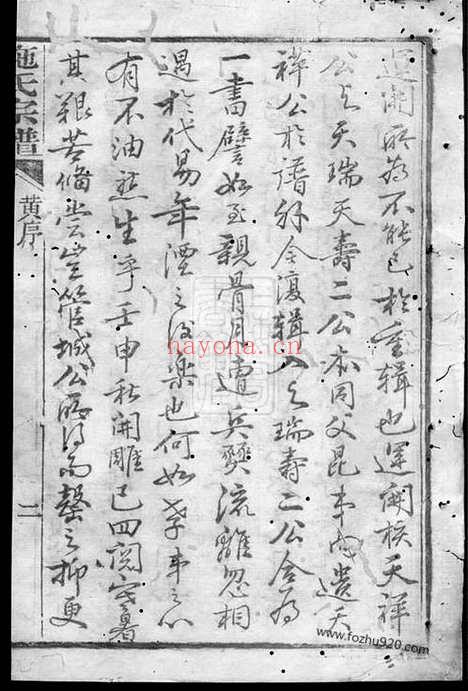 運開所為不能已於重輯也運開核天祥
公與天瑞天壽二公亦同父昆弟而遺天
祥公於譜外今復輯入與瑞壽二公合為
一書譬如至親骨肉遭兵燹流離忽相
遇於代易年湮之後樂也何如孝弟之心
有不油然生乎壬申秋開雕已四閱寒暑
其艱苦備嘗豈管城公所得而罄之抑更
施氏宗譜
黄序
二
nayona.cn
www.fozhu920.com